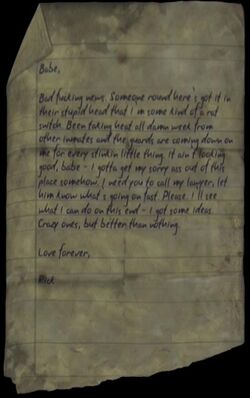 Babe,
Bad fucking news. Someone round here's got it in
their stupid head that I'm some kind of a rat
snitch. Been taking heat all damn week from
other inmates and the guards are coming down on
me for every stinkin little thing. It ain't looking
good, babe - I gotta get my sorry ass out of this
place somehow. I need you to call my lawyer, let
him know what's going on fast. Please. I'll see
what I can do on this end - I got some ideas.
Crazy ones, but better than nothing.
Love forever,
Rick